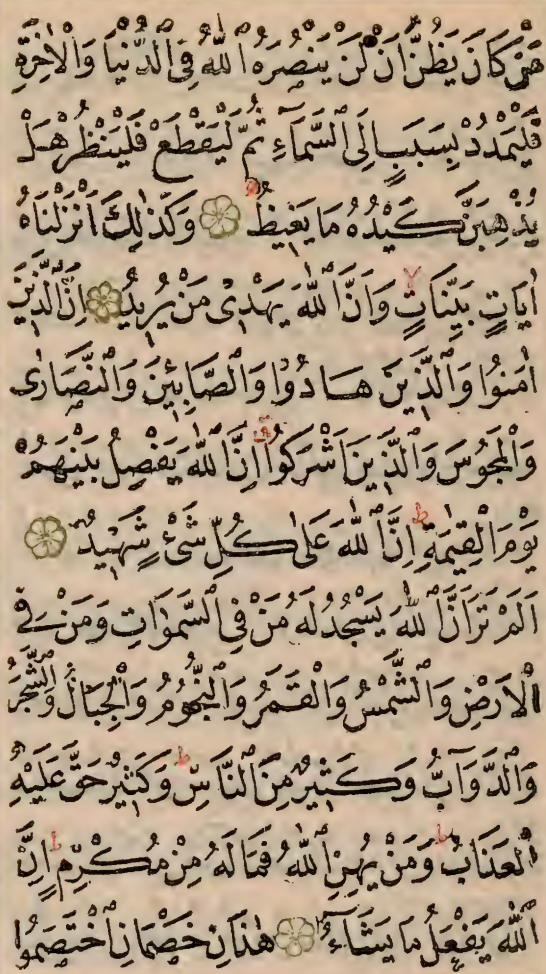 مَنْ كَانَ يَظُنُّ اَنْ لَنْ يَنْصُرَهُ اللّٰهُ فِي الدُّنْيَا وَالْاٰخِرَةِ
فَلْيَمْدُدْ بِسَبَبٍ اِلَى السَّمَآءِ ثُمَّ لْيَقْطَعْ فَلْيَنْظُرْ هَلْ
يُذْهِبَنَّ كَيْدُهُ مَا يَغِيظُ ۝ وَكَذٰلِكَ اَنْزَلْنَاهُ
اٰيَاتٍ بَيِّنَاتٍ وَاَنَّ اللّٰهَ يَهْدِى مَنْ يُرِيدُ ۝ اِنَّ الَّذِينَ
اٰمَنُوا وَالَّذِينَ هَادُوا وَالصَّابِئِينَ وَالنَّصَارٰى
وَالْمَجُوسَ وَالَّذِينَ اَشْرَكُوا اِنَّ اللّٰهَ يَفْصِلُ بَيْنَهُمْ
يَوْمَ الْقِيٰمَةِ ط اِنَّ اللّٰهَ عَلٰى كُلِّ شَىْءٍ شَهِيدٌ ۝
اَلَمْ تَرَ اَنَّ اللّٰهَ يَسْجُدُ لَهُ مَنْ فِي السَّمٰوَاتِ وَمَنْ فِي
الْاَرْضِ وَالشَّمْسُ وَالْقَمَرُ وَالنُّجُومُ وَالْجِبَالُ وَالشَّجَرُ
وَالدَّوَآبُّ وَكَثِيرٌ مِنَ النَّاسِ ط وَكَثِيرٌ حَقَّ عَلَيْهِ
الْعَذَابُ ط وَمَنْ يُهِنِ اللّٰهُ فَمَا لَهُ مِنْ مُكْرِمٍ ط اِنَّ
اللّٰهَ يَفْعَلُ مَا يَشَآءُ ۝ هٰذَانِ خَصْمَانِ اخْتَصَمُوا